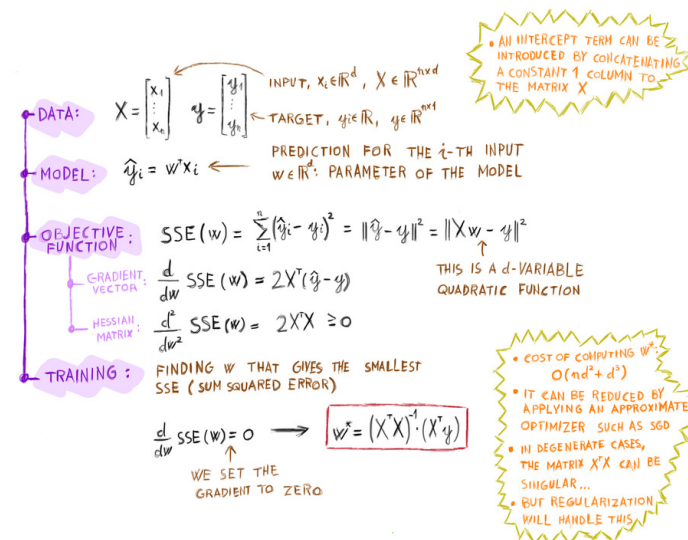 • AN INTERCEPT TERM CAN BE
INTRODUCED BY CONCATENATING
A CONSTANT 1 COLUMN TO
THE MATRIX X
DATA: X = [x₁ ⋮ xₙ] y = [y₁ ⋮ yₙ]
INPUT, xᵢ∈ℝᵈ, X∈ℝⁿˣᵈ
TARGET, yᵢ∈ℝ, y∈ℝⁿˣ¹
MODEL: ŷᵢ = wᵀxᵢ
PREDICTION FOR THE i-TH INPUT
w∈ℝᵈ: PARAMETER OF THE MODEL
OBJECTIVE
FUNCTION: SSE(w) = Σᵢ₌₁ⁿ(ŷᵢ - yᵢ)² = ‖ŷ - y‖² = ‖Xw - y‖²
THIS IS A d-VARIABLE
QUADRATIC FUNCTION
GRADIENT
VECTOR: d/dw SSE(w) = 2Xᵀ(ŷ-y)
HESSIAN
MATRIX: d²/dw² SSE(w) = 2XᵀX ≥ 0
TRAINING: FINDING w THAT GIVES THE SMALLEST
SSE (SUM SQUARED ERROR)
d/dw SSE(w) = 0 → w* = (XᵀX)⁻¹·(Xᵀy)
WE SET THE
GRADIENT TO ZERO
• COST OF COMPUTING w*:
O(nd² + d³)
• IT CAN BE REDUCED BY
APPLYING AN APPROXIMATE
OPTIMIZER SUCH AS SGD
• IN DEGENERATE CASES,
THE MATRIX XᵀX CAN BE
SINGULAR...
• BUT REGULARIZATION
WILL HANDLE THIS